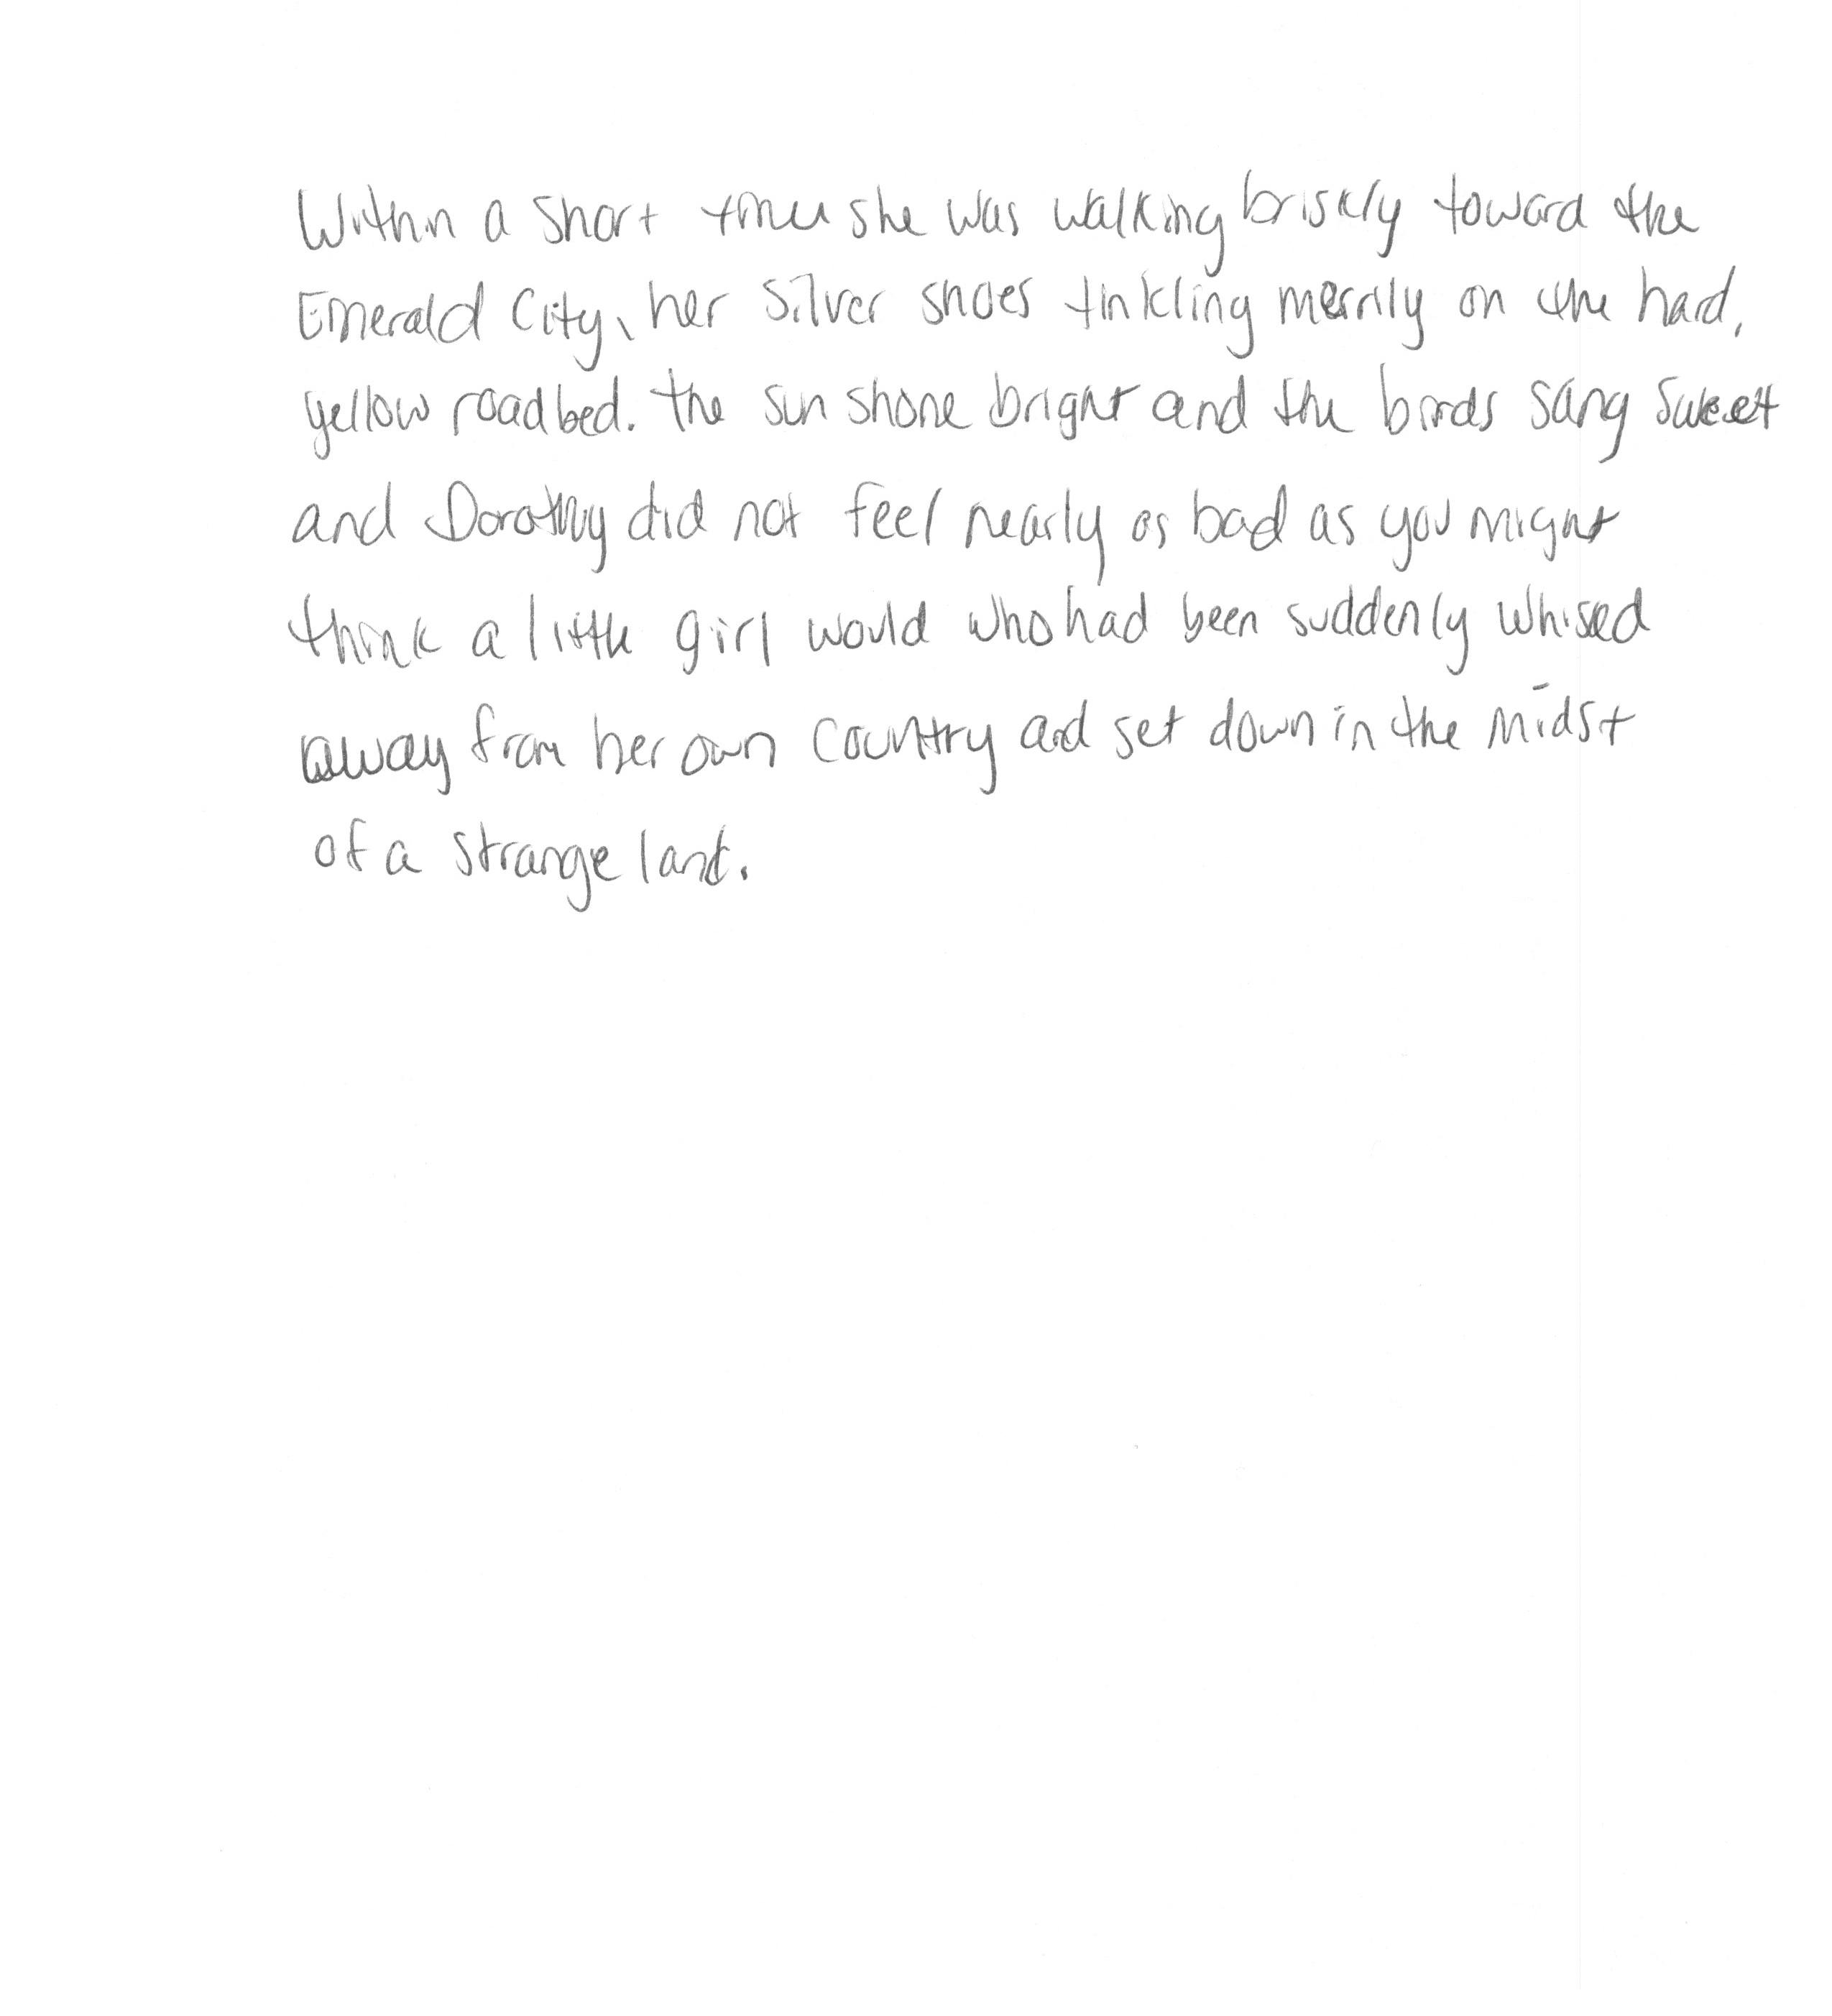 Within a short time she was walking briskly toward the
Emerald City, her silver shoes tinkling merrily on the hard,
yellow roadbed. the sun shone bright and the birds sang sweet
and Dorothy did not feel nearly as bad as you might
think a little girl would who had been suddenly whised
away from her own country and set down in the midst
of a strange land.